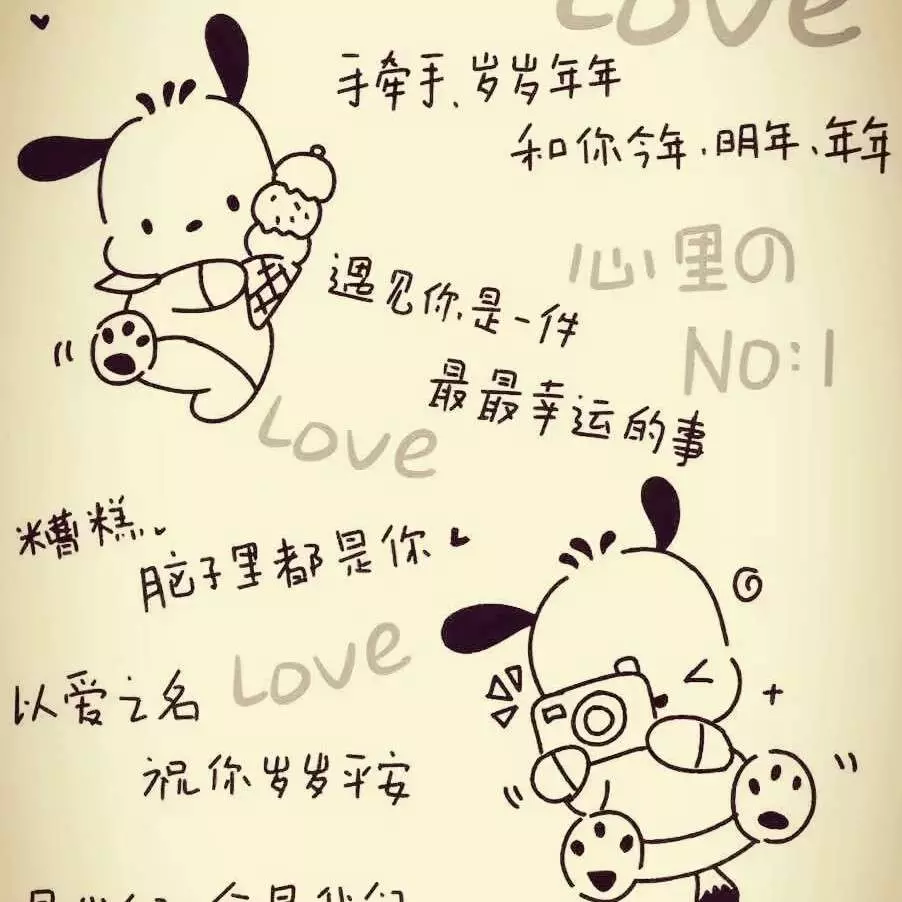 Love
手牵手、岁岁年年
和你今年、明年、年年
心里の
NO:1
遇见你是一件
最最幸运的事
Love
糟糕、
脑子里都是你
Love
以爱之名
祝你岁岁平安